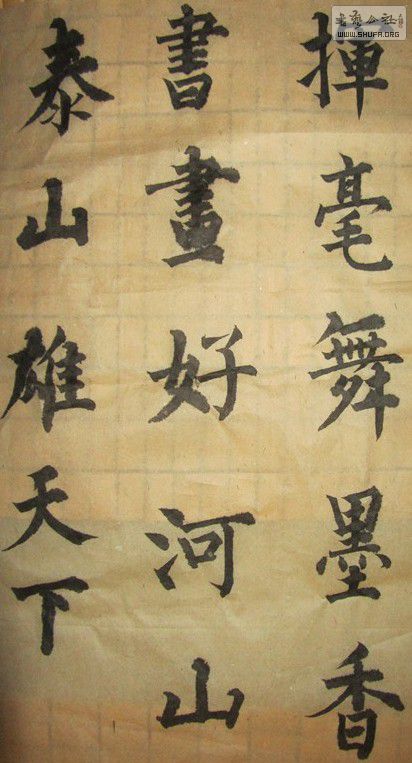 揮毫舞墨香
書畫好河山
泰山雄天下
WWW.SHUFA.ORG